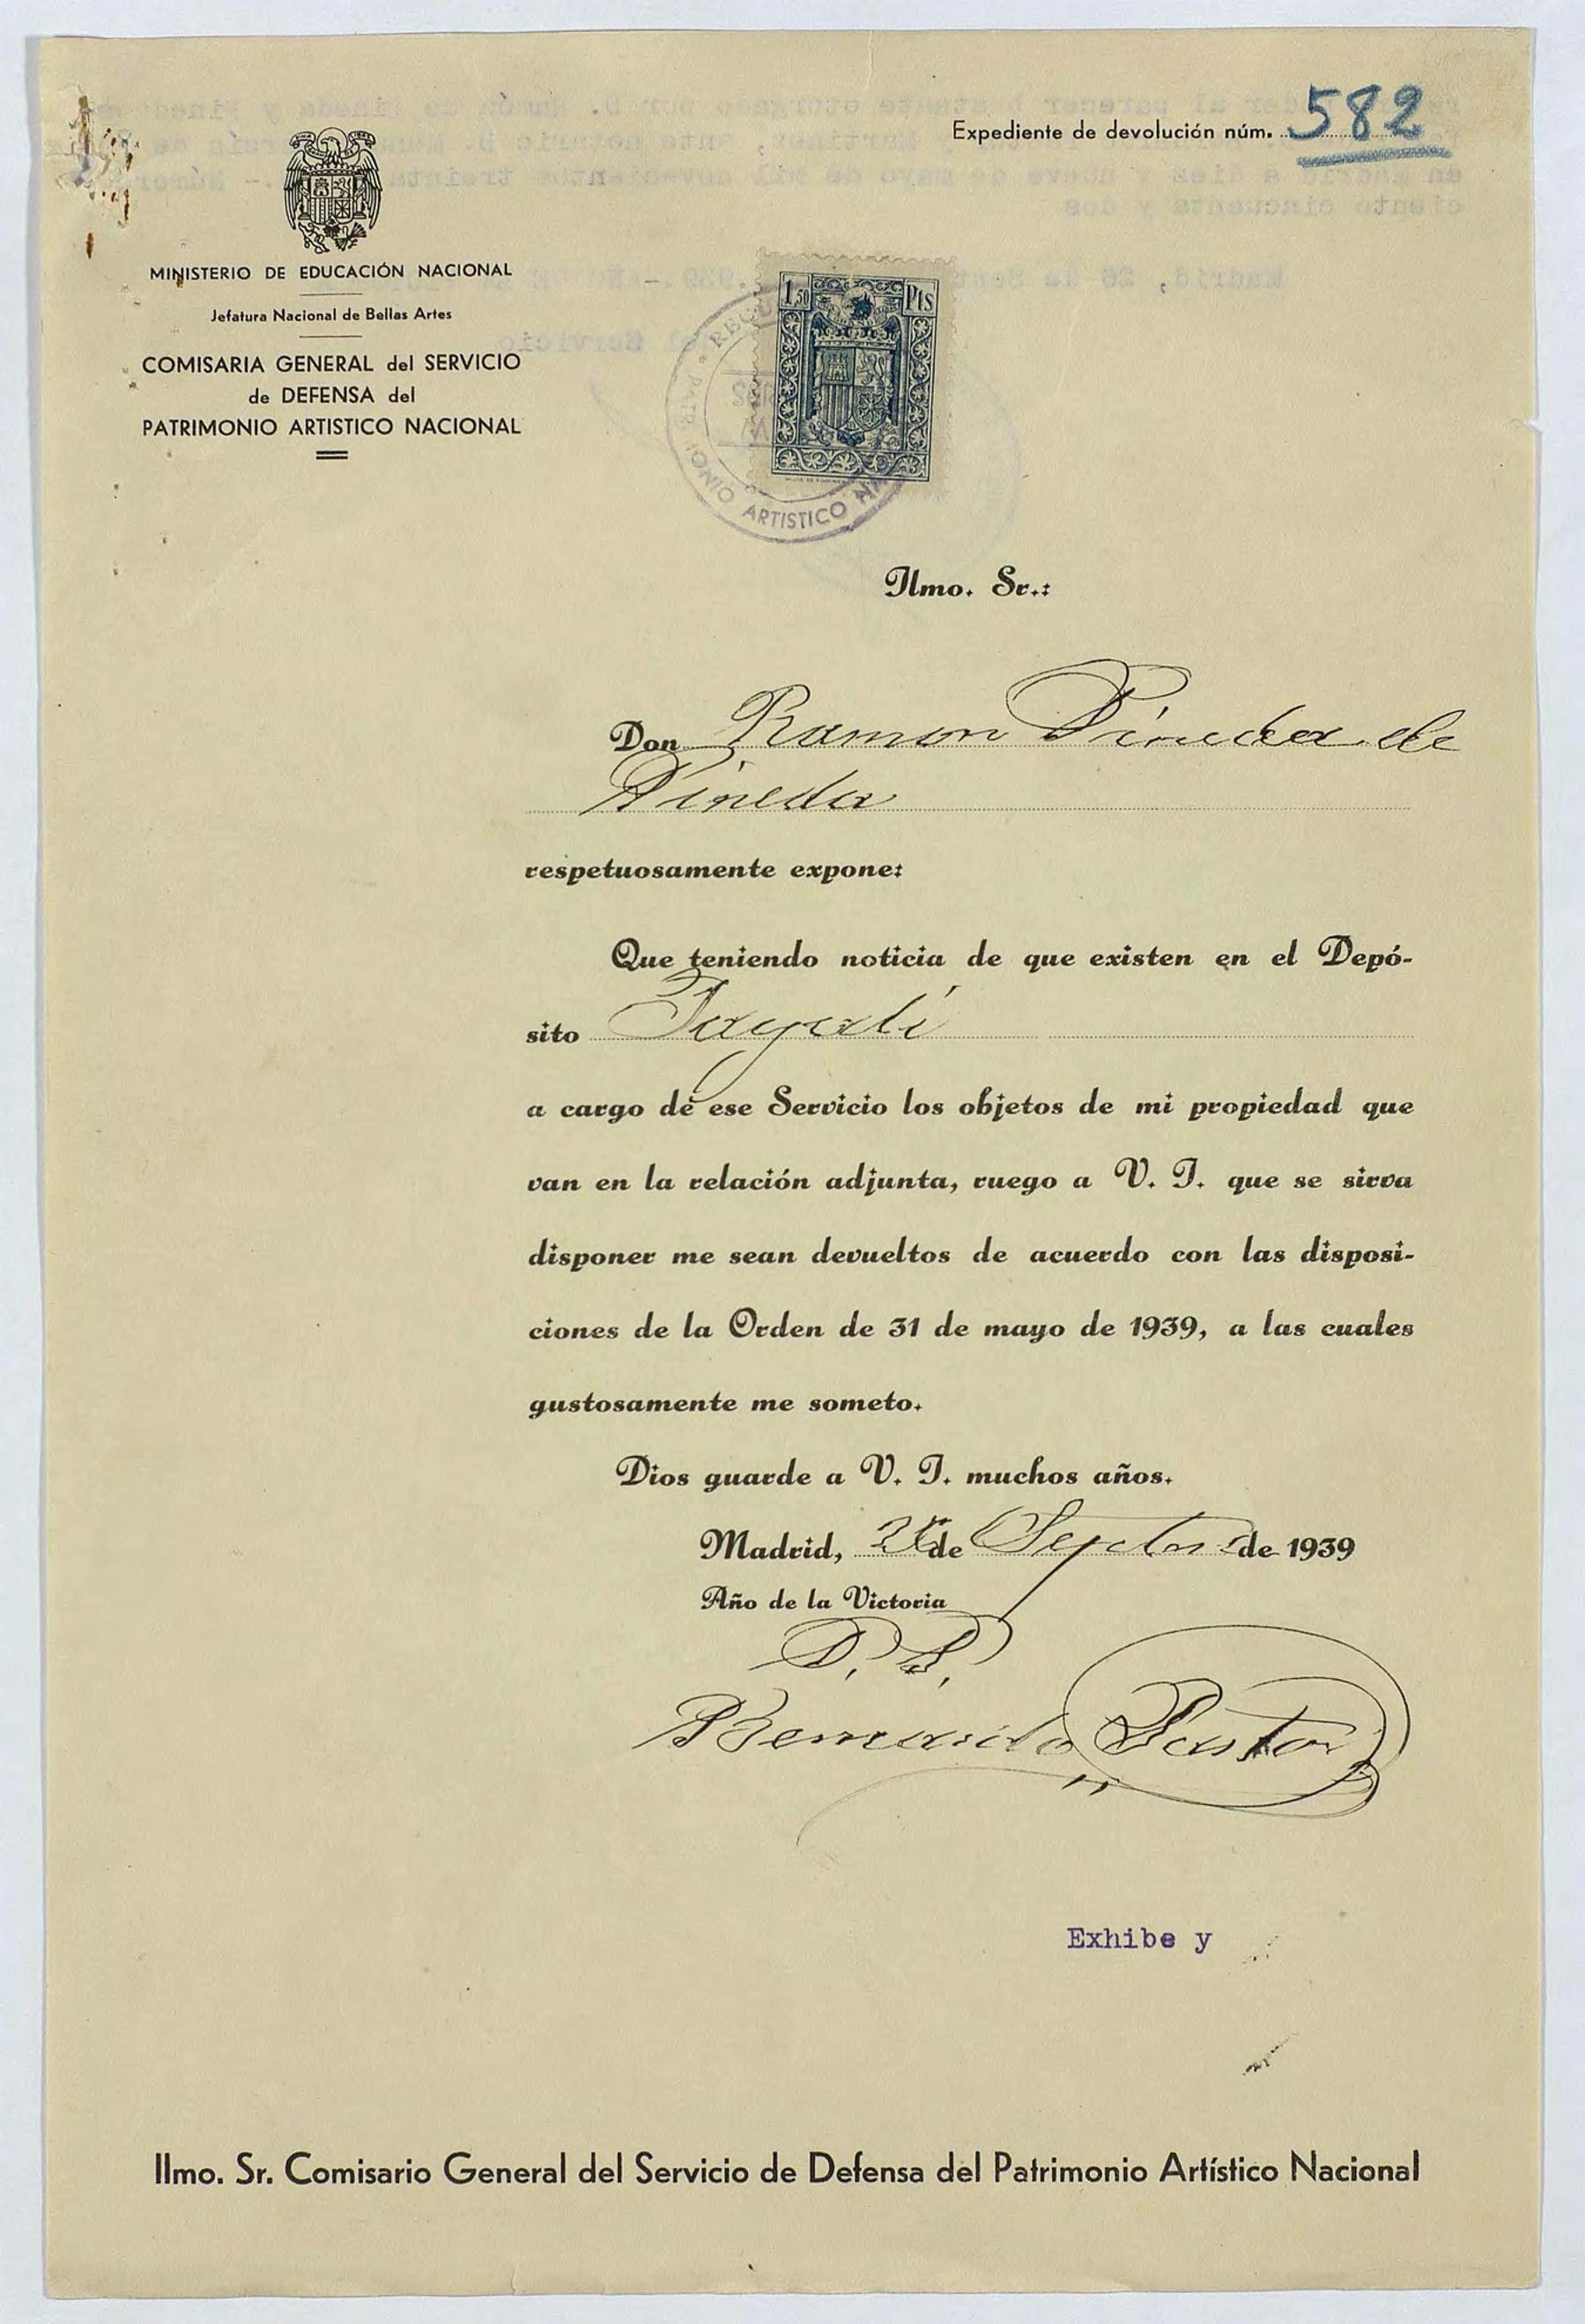 Expediente de devolución núm. 582
MINISTERIO DE EDUCACIÓN NACIONAL
Jefatura Nacional de Bellas Artes
COMISARIA GENERAL del SERVICIO
de DEFENSA del
PATRIMONIO ARTISTICO NACIONAL
1,50 Pts
ARTISTICO
Ilmo. Sr.:
Don Ramon Pineda de
Pineda
respetuosamente expone:
Que teniendo noticia de que existen en el Depó-
sito
a cargo de ese Servicio los objetos de mi propiedad que
van en la relación adjunta, ruego a V. I. que se sirva
disponer me sean devueltos de acuerdo con las disposi-
ciones de la Orden de 31 de mayo de 1939, a las cuales
gustosamente me someto.
Dios guarde a V. I. muchos años.
Madrid, 26 de Septbre de 1939
Año de la Victoria
Bernardo Pastor
Exhibe y
Ilmo. Sr. Comisario General del Servicio de Defensa del Patrimonio Artístico Nacional